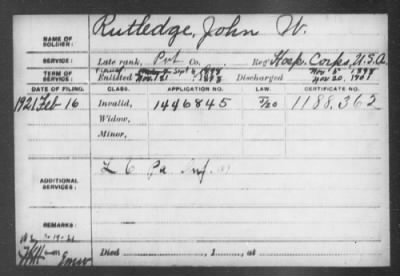 Rutledge, John W.
NAME OF SOLDIER:
SERVICE: Late rank, Pvt Co. Reg't Hosp. Corps, U.S.A.
TERM OF SERVICE: Enlisted Sept 6 1898 Discharged Nov 5 1898
Nov. 21 1898 Nov 20, 1901
DATE OF FILING. CLASS. APPLICATION NO. LAW. CERTIFICATE NO.
1921 Feb 16 Invalid, 1446845 1188.362
Widow,
Minor,
ADDITIONAL SERVICES: L 6 Pa Inf.
REMARKS:
Died , 1 , at